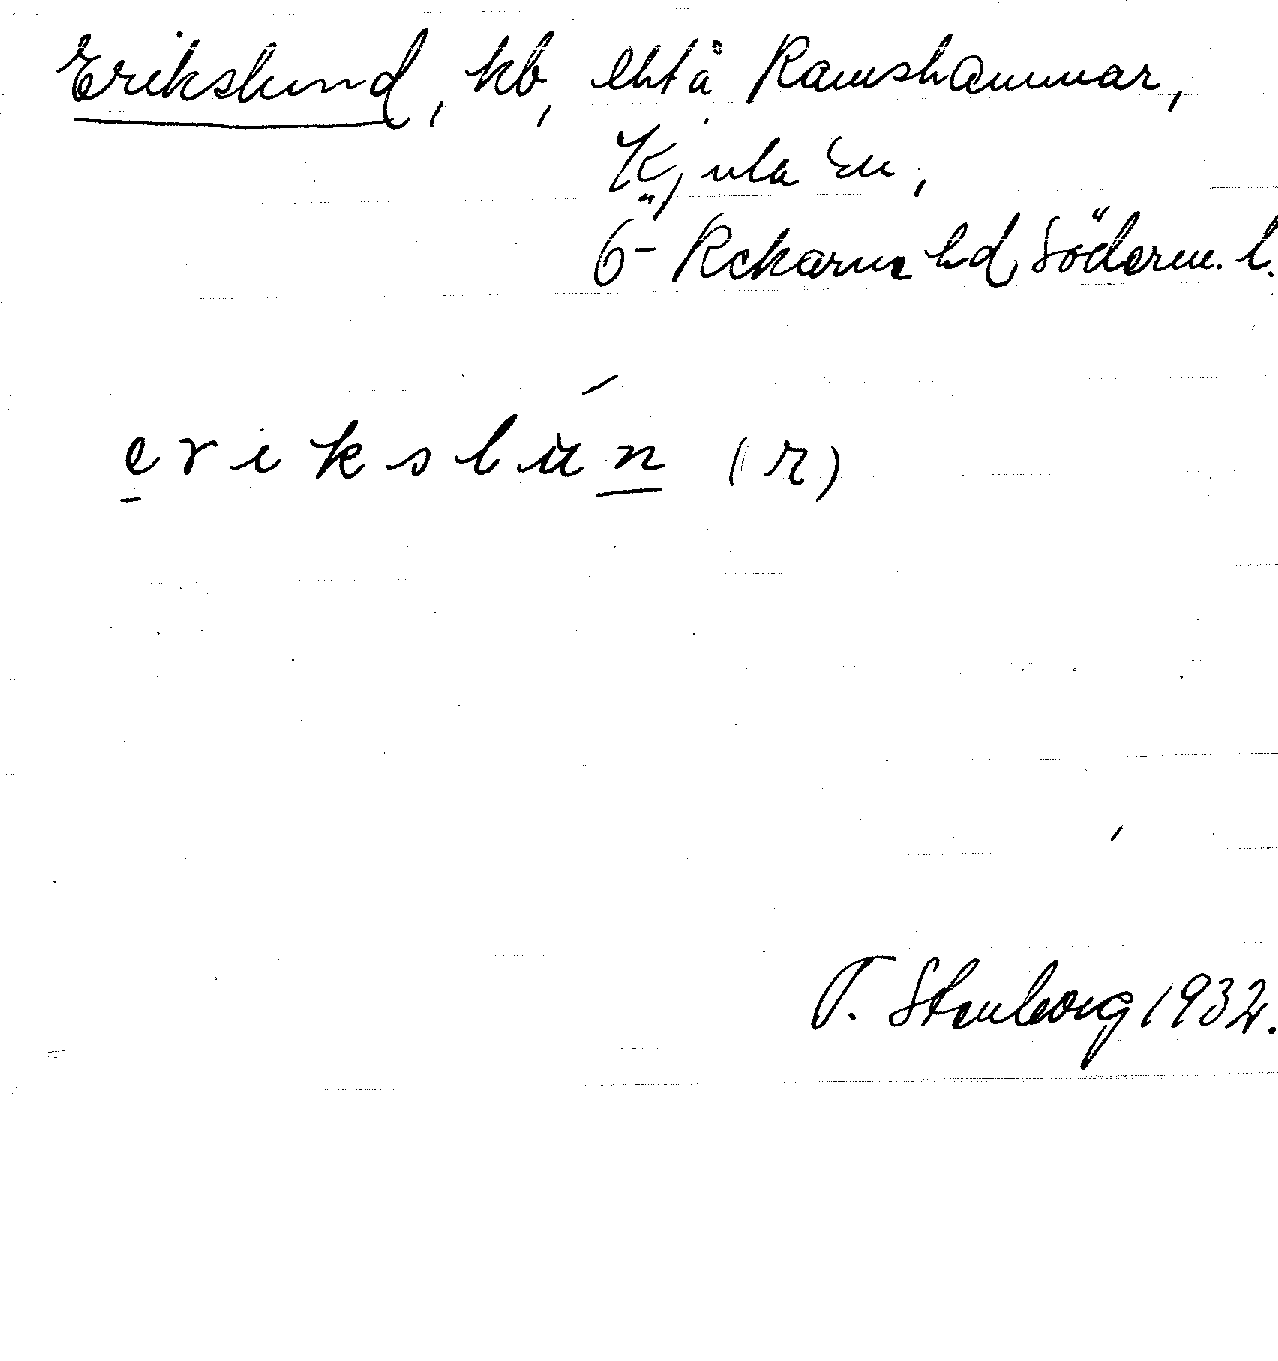 Erikslund, kb, lht å Ramshammar,
Kjula sn,
Ö-Rekarne hd, Söderm. l.
erikslún (r)
T. Stenborg 1932.